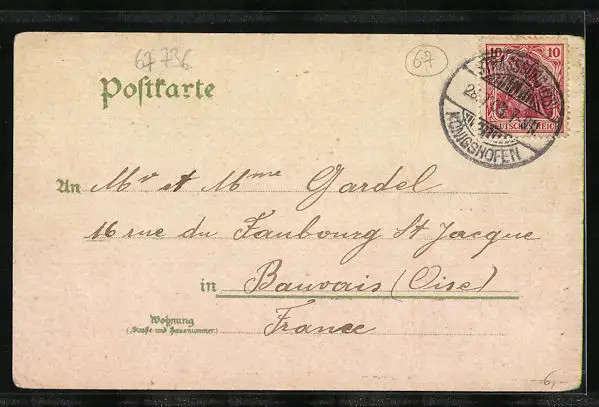 67 736
67
10 10
DEUTSCHES REICH
KÖNIGSHOFEN
Postkarte
An Mr et Mme Gardel
16 rue du Faubourg St Jacque
in Bauvais (Oise)
Wohnung
(Straße und Hausnummer)
France
6,